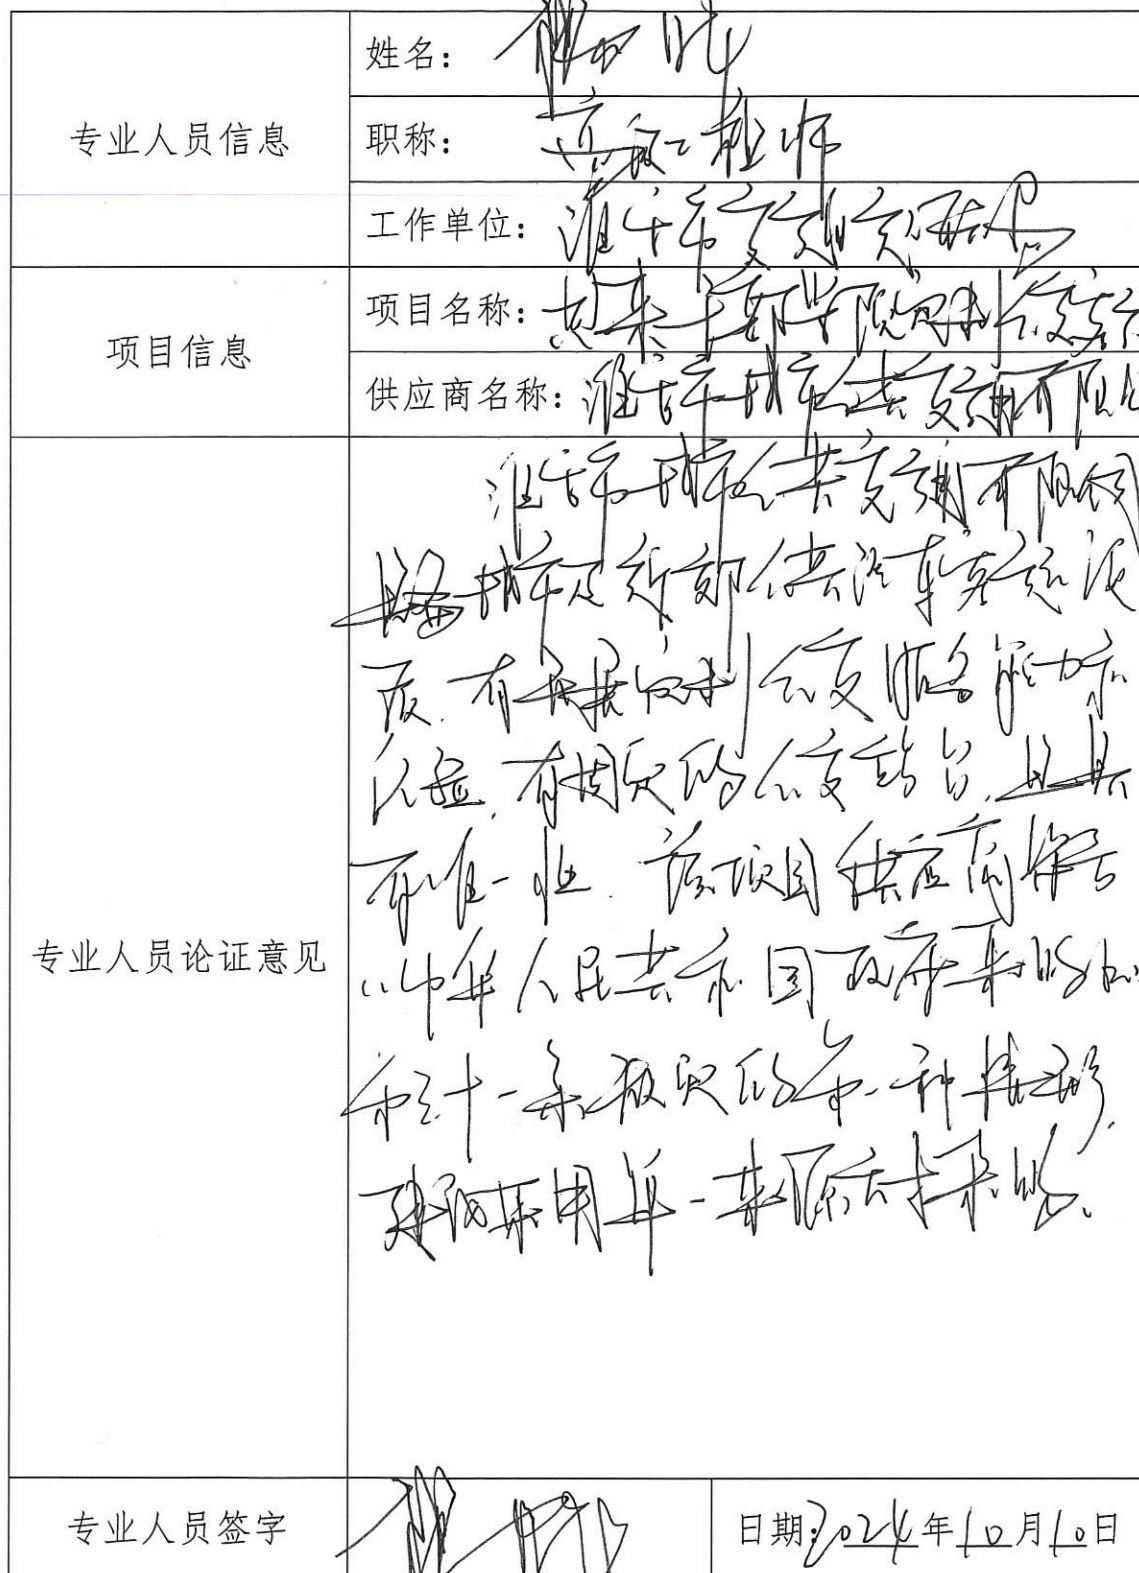 专业人员信息
姓名：
职称： 高级工程师
工作单位： 淮安市交通
项目信息
项目名称： 定制公交
供应商名称： 淮安市城市公共交通有限
专业人员论证意见
淮安市城市公共交通有限公司
城市及近郊公共汽车客运
有开展定制公交服务能力和
经验，有固定的公交站台，且具
有唯一性。该项目供应商符合
《中华人民共和国政府采购法》
第三十一条规定的第一种情形，
建议采用单一来源方式采购。
专业人员签字
日期：2024年10月10日